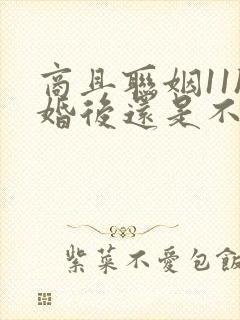 商且聯姻11
婚後還是不
紫菜不愛包飯